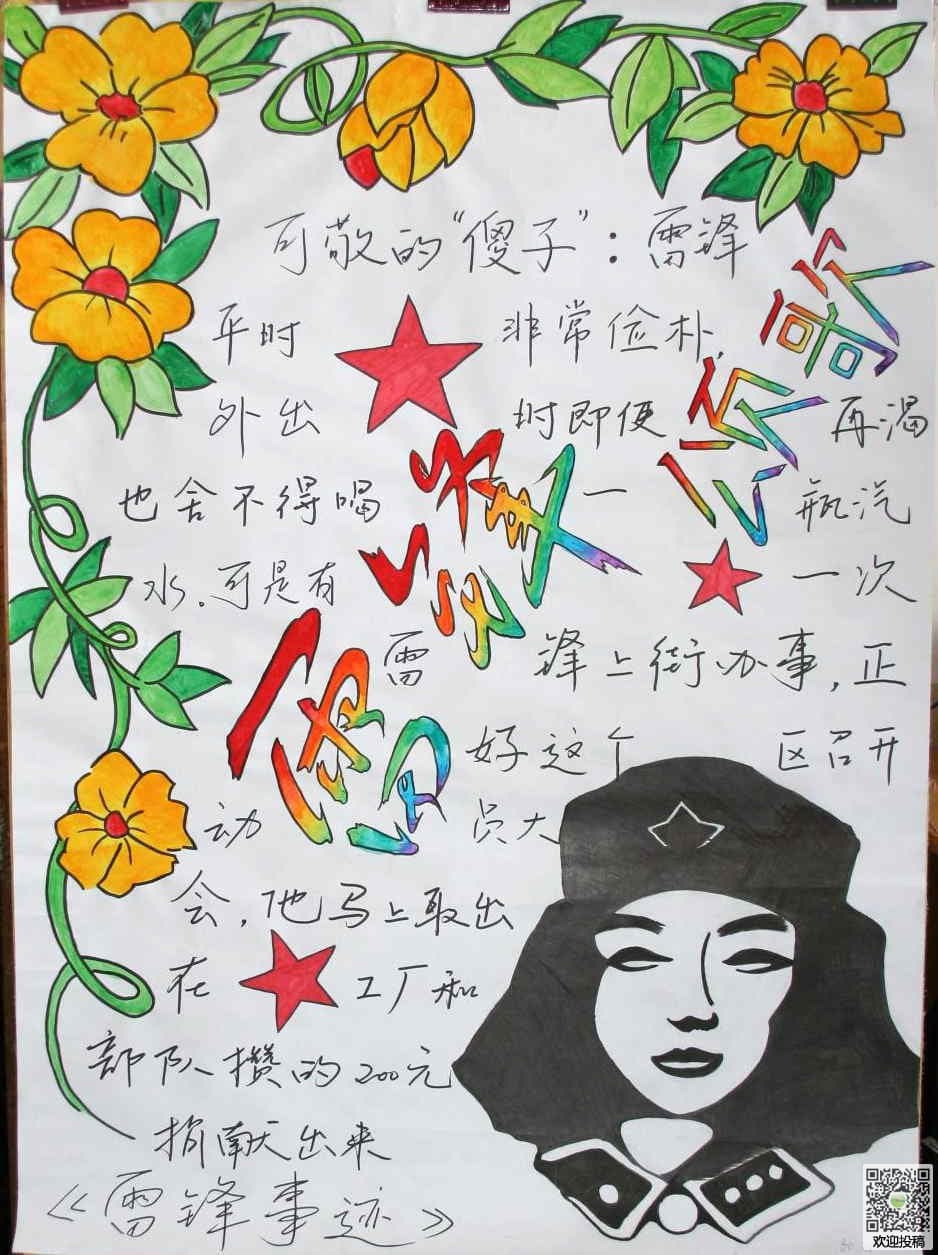 可敬的“傻子”：雷锋
平时 非常俭朴，
外出 时即便 再渴
也舍不得喝 一 瓶汽
水，可是有 一次
雷 锋上街办事，正
好这个 区召开
动 员大
会，他马上取出
在 工厂和
部队攒的200元
捐献出来
《雷锋事迹》
雷锋颂歌
欢迎投稿